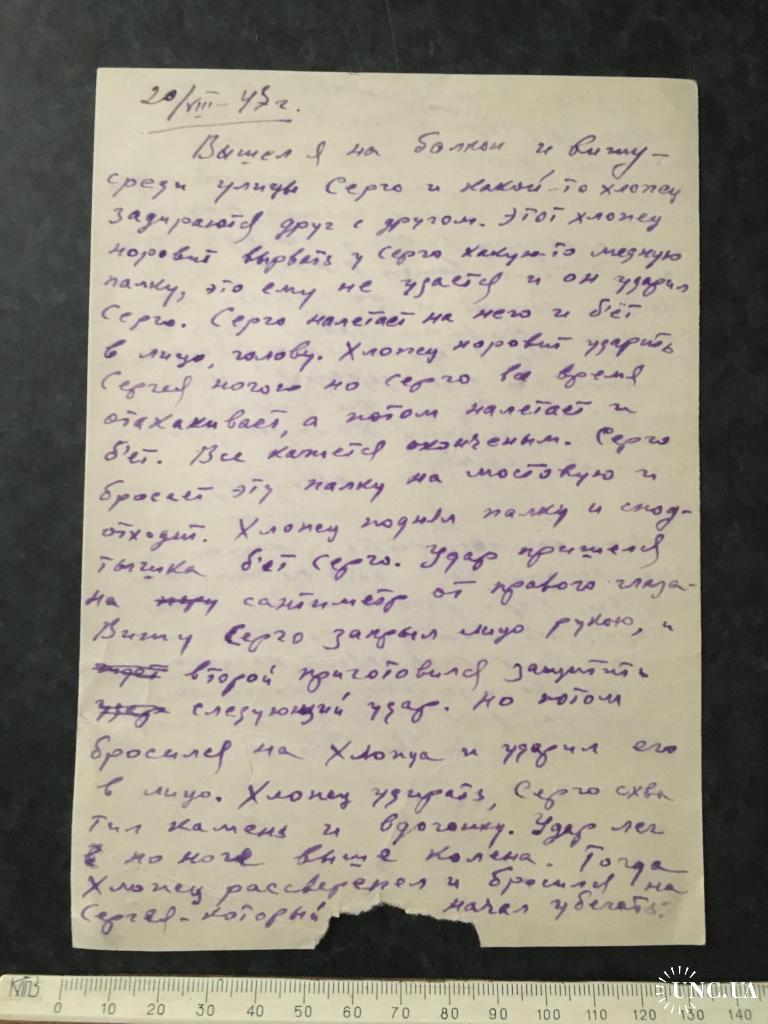 20/VIII-45 г.
Вышел я на балкон и вижу –
среди улицы Серго и какой-то хлопец
задираются друг с другом. Этот хлопец
норовит вырвать у Серго какую-то медную
палку, это ему не удается и он ударил
Серго. Серго налетает на него и б'ёт
в лицо, голову. Хлопец норовит ударить
Сергея ногою но Серго все время
отскакивает, а потом налетает и
б'ет. Все кажется оконченым. Серго
бросает эту палку на мостовую и
отходит. Хлопец поднял палку и спод-
тышка б'ет Серго. Удар пришелся
на сантиметр от правого глаза-
Вижу Серго закрыл лицо рукою, и
второй приготовился защитить
следующий удар. Но потом
бросился на хлопца и ударил его
в лицо. Хлопец удирать, Серго схва
тил камень и вдогонку. Удар лег
по ноге выше колена. Тогда
Хлопец рассверепел и бросился на
Сергея-который начал убегать.
КПЗ
0 10 20 30 40 50 60 70 80 90 100 110 120 130 140
UNC.UA